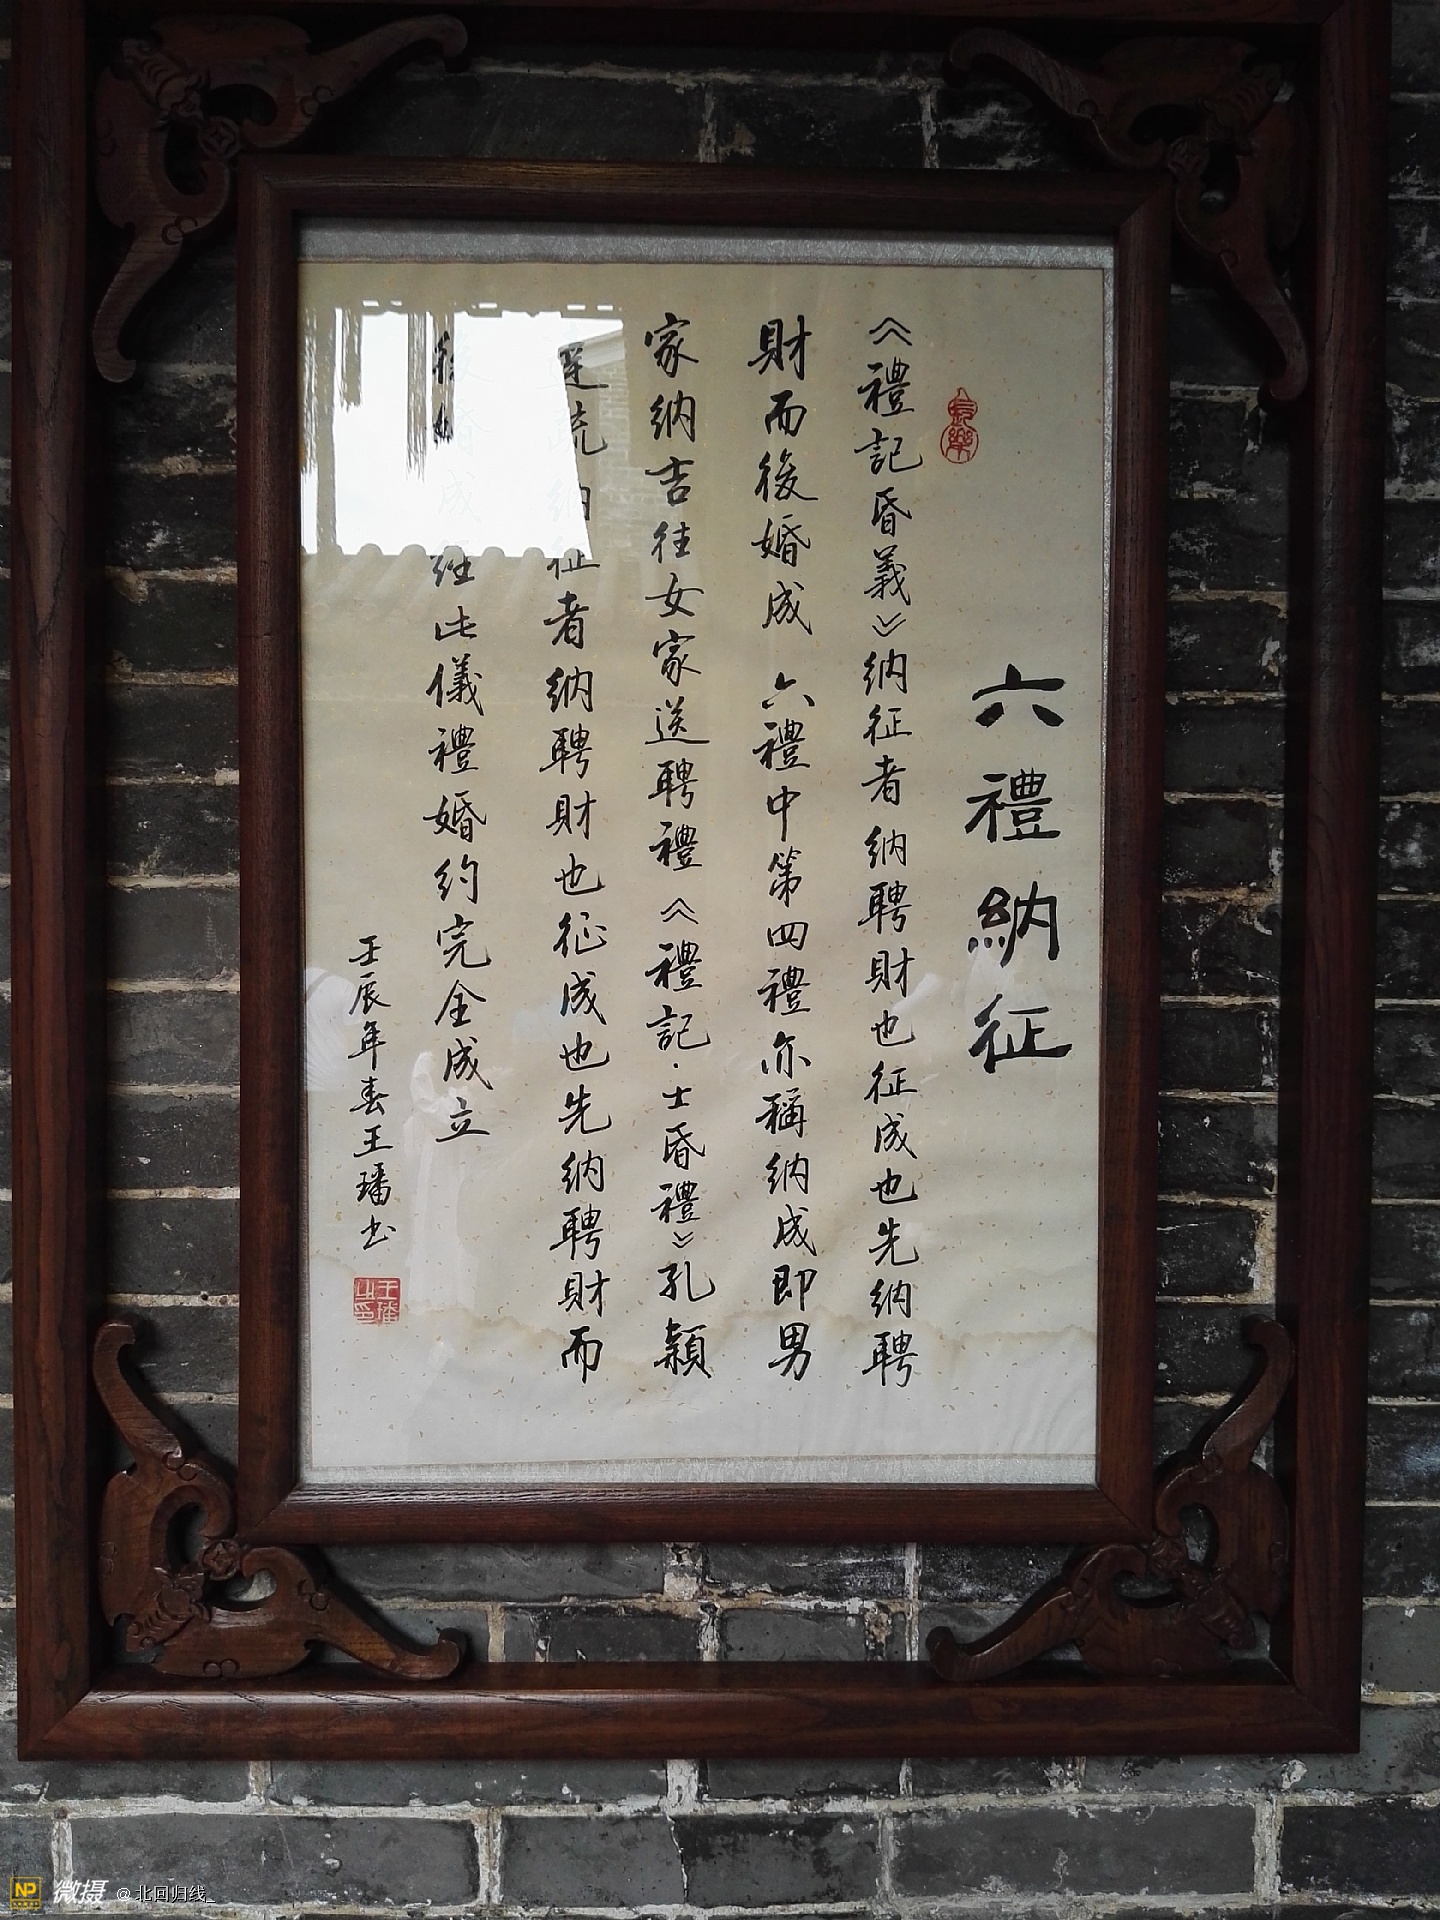 六禮納征
長樂
《禮記昏義》納征者納聘財也征成也先納聘
財而後婚成 六禮中第四禮亦稱納成即男
家納吉往女家送聘禮《禮記·士昏禮》孔穎
達疏納征者納聘財也征成也先納聘財而
後婚成經此儀禮婚約完全成立
壬辰年春王璠书
王璠之印
NP 微摄 @北回归线_